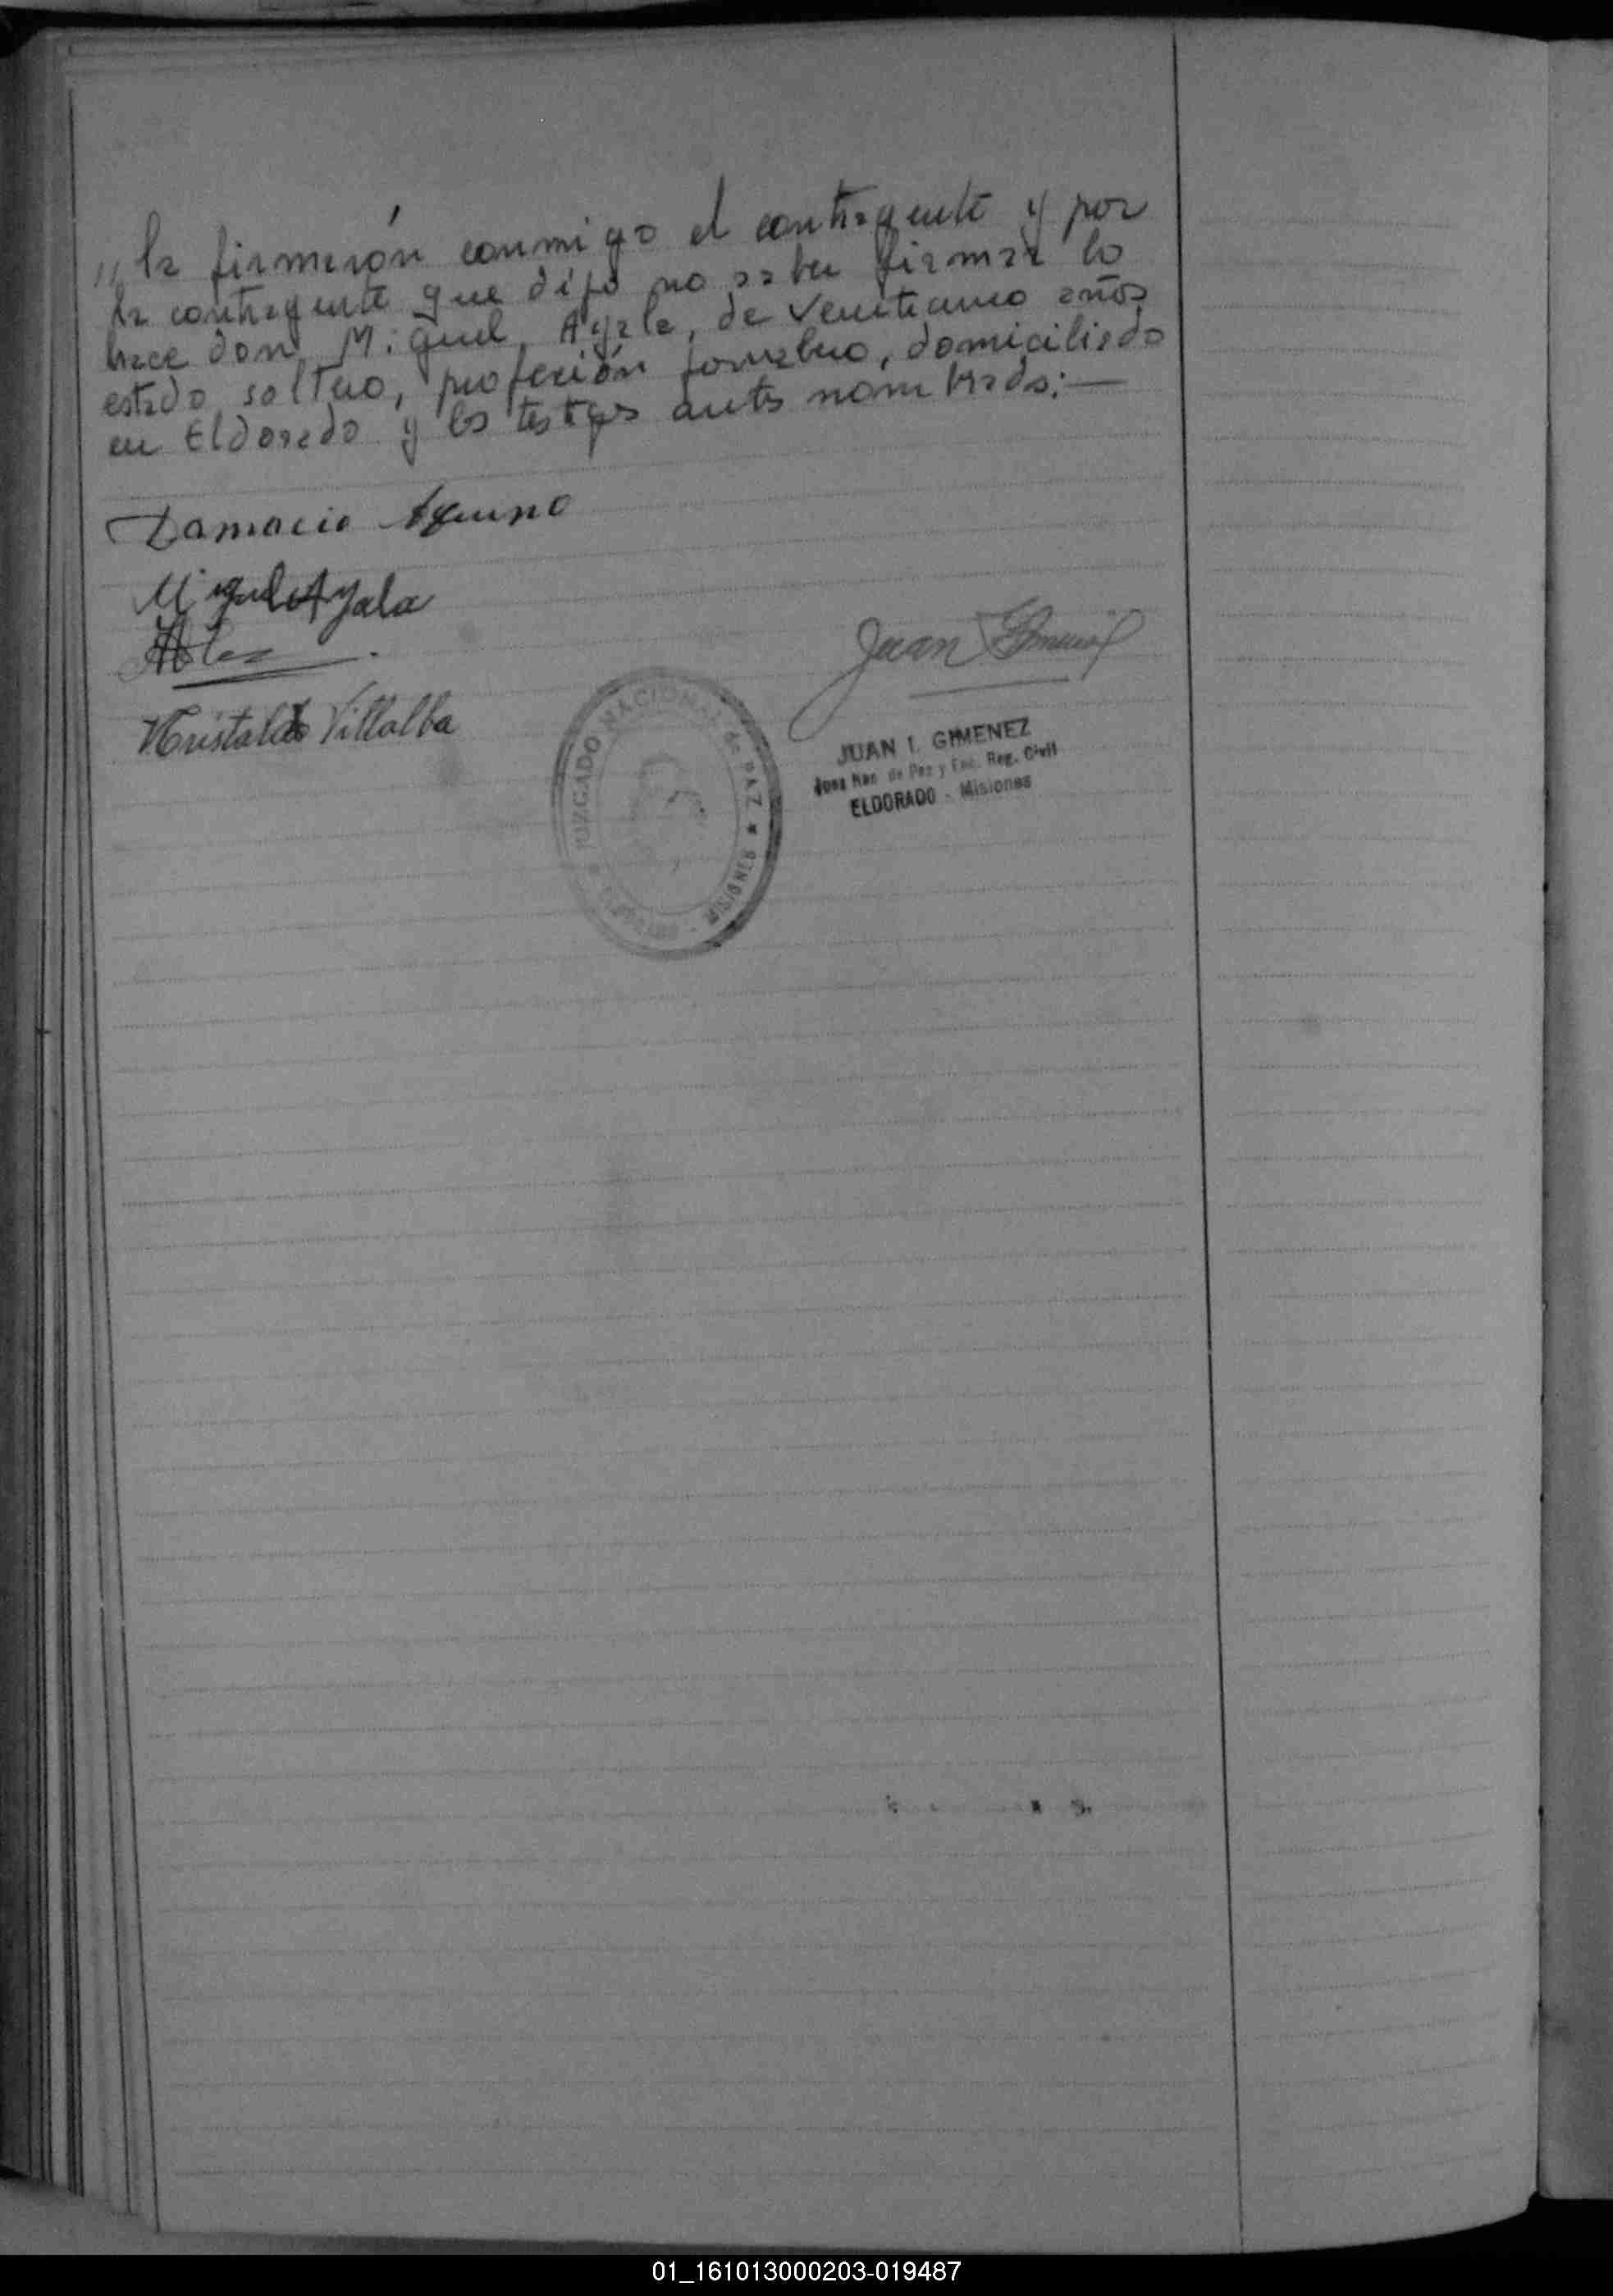 ,, la firmarón conmigo el contrayente y por
la contrayente que dijo no saber firmar lo
hace don Miguel Ayala, de veinticinco años
estado soltero, profesión jornalero, domiciliado
en Eldorado y los testigos antes nombrados:—
Damacio Aquino
Miguel Ayala
Juan Gimenez
Kristaldo Villalba
JUZGADO NACIONAL de PAZ ★ MISIONES - ELDORADO ★
JUAN I. GIMENEZ
Juez Nac. de Paz y Enc. Reg. Civil
ELDORADO - Misiones
01_161013000203-019487